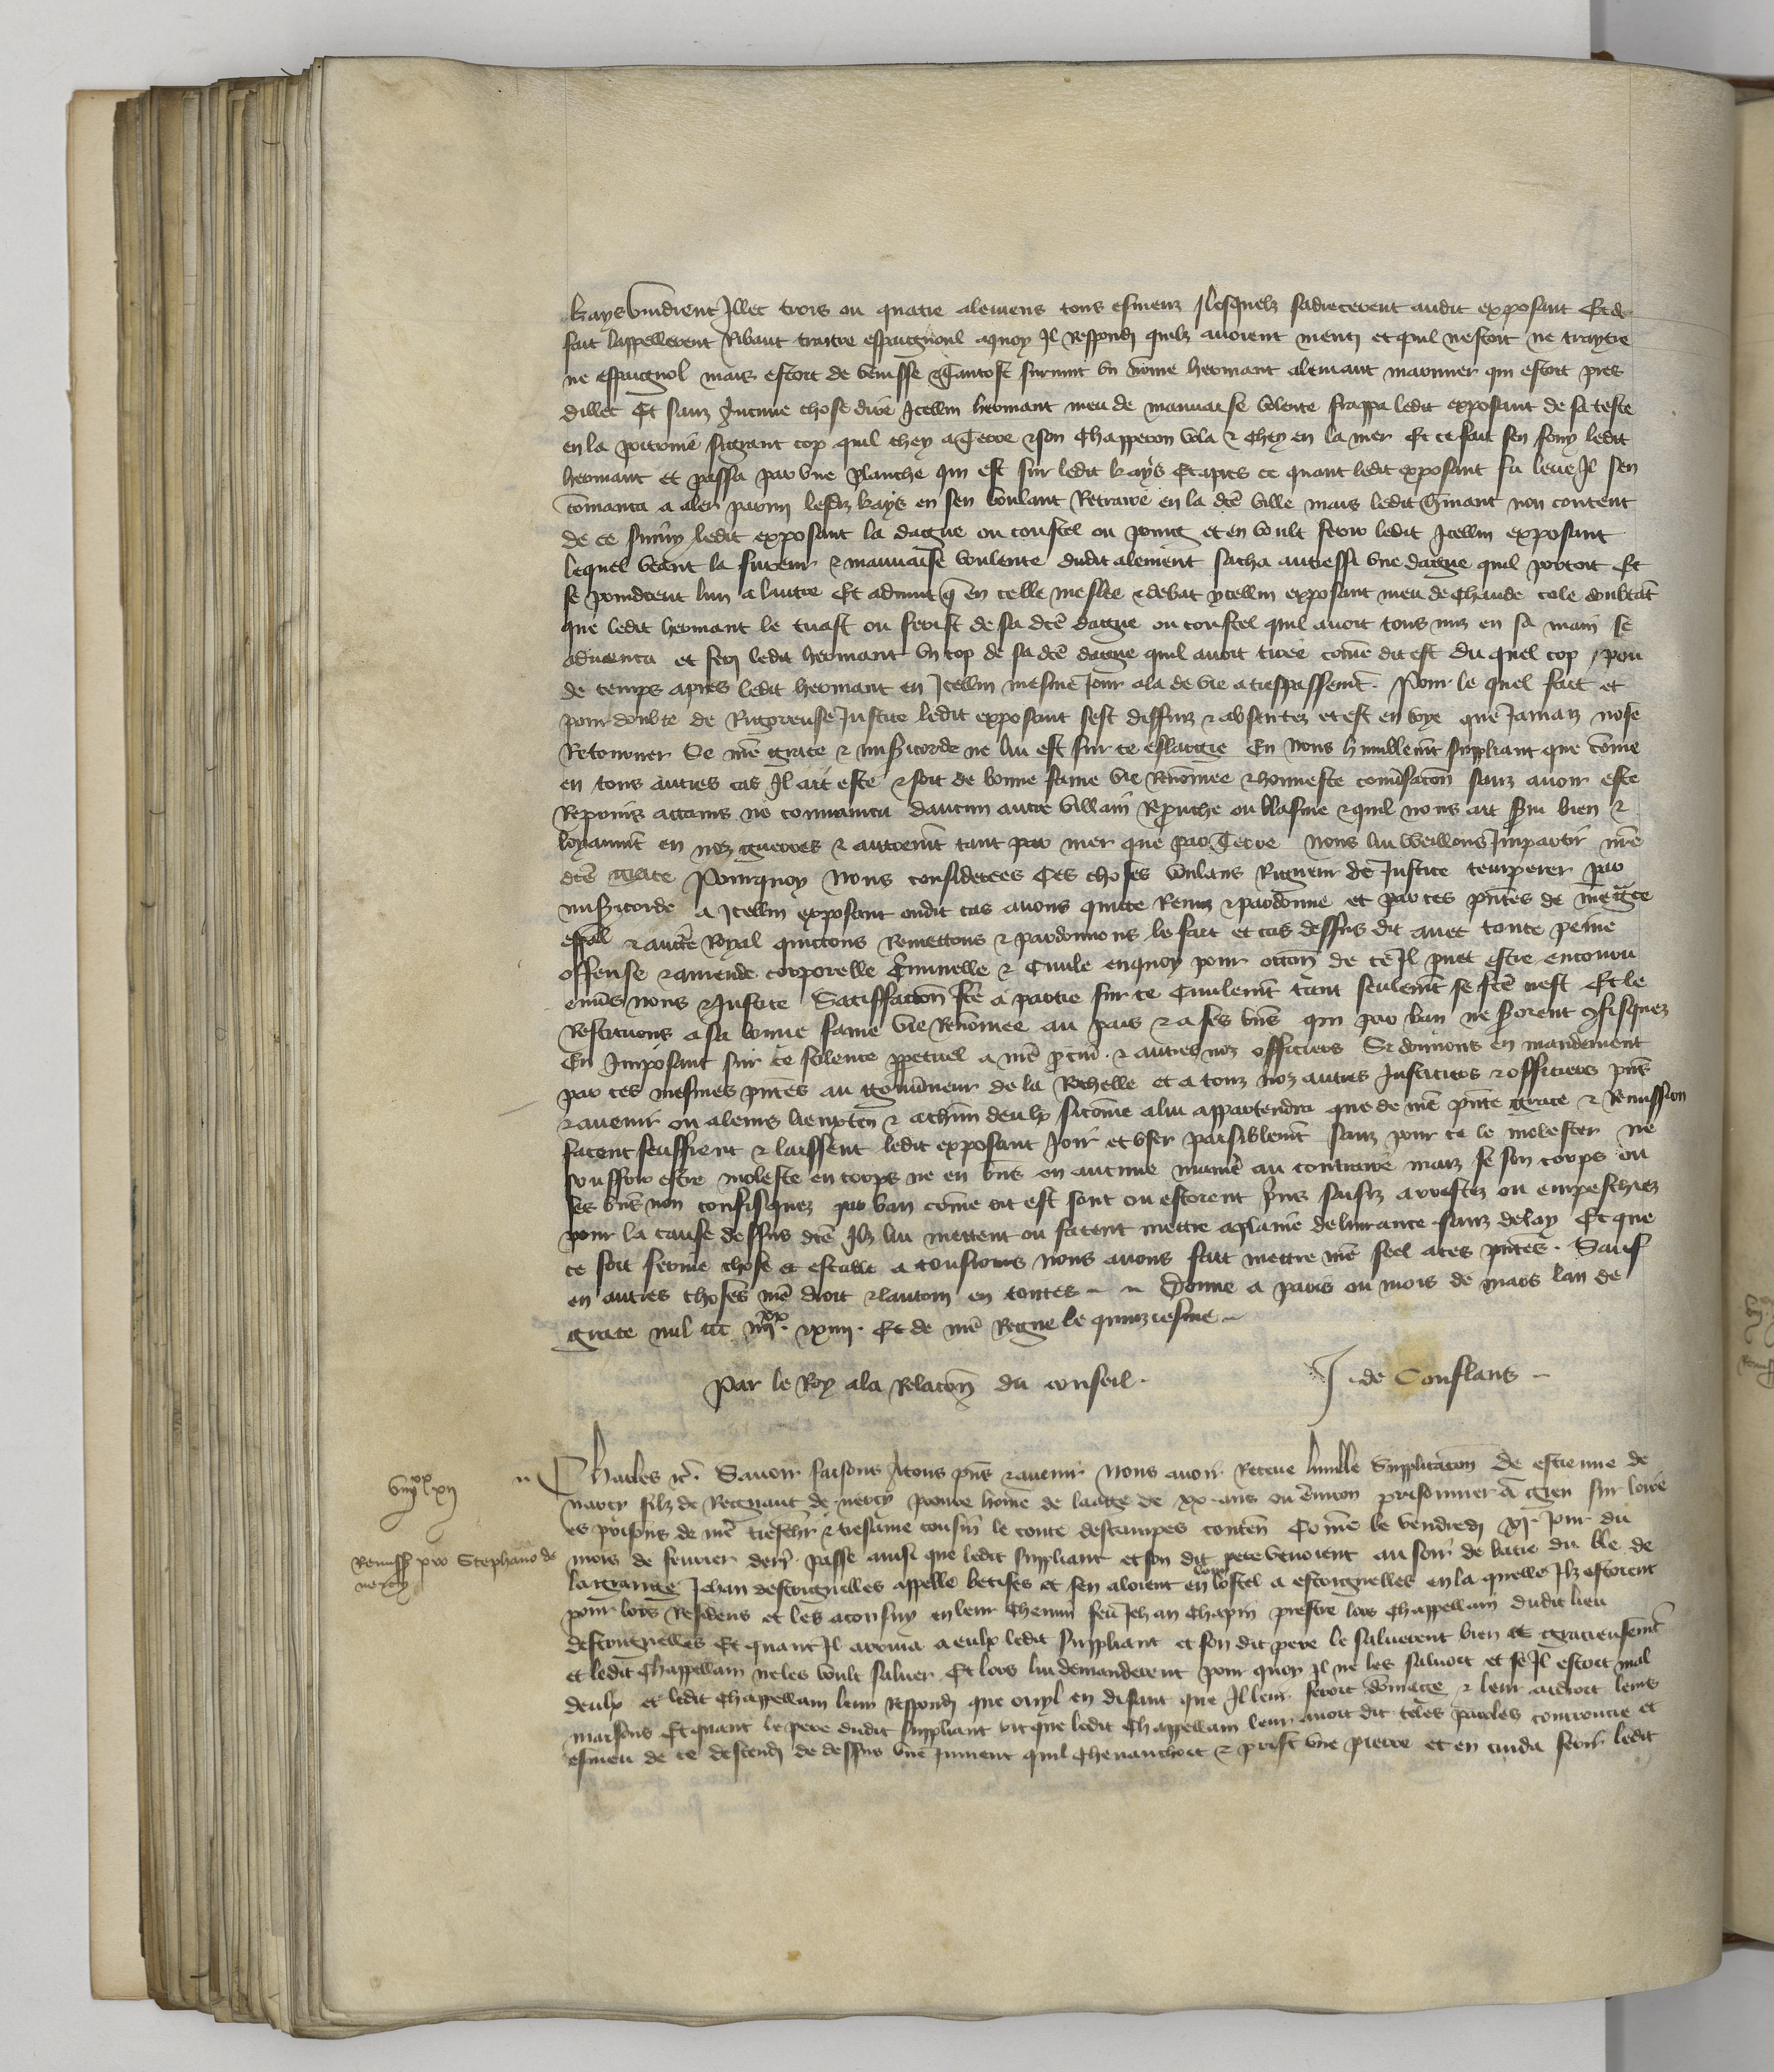 kays vindrent Illec trois ou quatre alemens tous esmeuz lesquelz sadrecerent audit exposant Et de
fait lappellerent Ribaut traitre espaignoul aquoy Il Respondi quilz avoient menti et quil nestoit ne traytre
ne espaignol mais estoit de venisse Et tantost survint un nōme hermant alemant maronnier qui estoit pres
dillec Et sanz aucune chose dire Icellui hermant meu de mauvaise volente frappa ledit exposant de sa teste
en la poitrine si grant cop quil chey a Terre & son Chapperon vola & Chey en la mer Et ce fait sen fouy ledit
hermant et passa par une planche qui est sur ledit kays Et apres ce quant ledit exposant fu leve Il sen
cōmanca a aler parmy lesdiz kays en sen voulant Retraire en la dcē ville mais ledit hmant non content
de ce suiuy ledit exposant la dague ou coustel ou poing et en voult ferir ledit Icellui exposant
lequel veant la fureur & mauvaise voulente dudit alement sacha autressi une dague quil portoit Et
se poindrent lun a lautre Et advint q̄ en celle meslee & debat ycellui exposant meu de Chaude cole doubtāt
que ledit hermant le tuast ou ferist de sa dcē dague ou coustel quil avoit tous nuz en sa main se
advanca et feri ledit hermant un cop de sa dcē dague quil avoit tiree cōme dit est Du quel cop / pou
de temps apres ledit hermant en Icellui mesme Jour ala de vie a trespassemt. Pour le quel fait et
pour doubte de Rigoreuse Justice ledit exposant sest deffuiz & absentez et est en voye que Jamaiz nose
Retourner Se nrē grace & misicorde ne lui est sur ce eslargie En Nous humblemt suppliant que cōme
en tous autres cas Il ait este & soit de bonne fame vie Renōmee & honneste conūsacōn sanz avoir este
Repris attains ne convaincu daucun autre villain Reprouche ou blasme & quil nous ait sui bien &
loyaumt en noz guerres & autremt tant par mer que par Terre Nous lui vueillons Impartir nrē
dcē grace Pourquoy Nous considerees Ces choses voulans Rigueur de Justice temperer par
misicorde a Icellui exposant oudit cas avons quicte Remiz & pardonne et par ces pn̄tes de nrē gc̄e
esp̄al & auctē Royal quictons Remettons & pardonnons le fait et cas dessus dit avec toute peine
offense & amende corporelle Cīminelle & Civile enquoy pour occōn de ce Il puet estre encouru
enūs nous & Justice Satisfaccōn fcē a partie sur ce Civilemt tant seulemt se fcē nest Et le
Restituons a sa bonne fame vie Renōmee au pais & a ses bn̄s qui par ban ne seroient confisquez
En Imposant sur ce silence ppetuel a nrē pcūr & autres noz officiers Si donnons en mandement
par ces mesmes pn̄tes au gouūneur de la Rochelle et a touz noz autres Justiciers & officiers pn̄s
& avenir ou a leurs lieuxten & a chūn deulx sicōme a lui appartendra que de nrē pn̄te grace & Remission
facent seuffrent & laissent ledit exposant Joir et user paisiblemt sanz pour ce le molester ne
souffrir estre moleste en corps ne en bn̄s en aucune manie au contraire maiz se son corps ou
ses bn̄s non confisquez par ban cōme dit est sont ou estoient prins saisiz arrestez ou empeschiez
pour la cause dessus dcē Ilz lui mettent ou facent mettre a plaine delivrance sanz delay Et que
ce soit ferme chose et estable a tousiours Nous avons fait mettre nrē seel a ces pn̄tes. Sauf
en autres choses nrē droit & lautruy en toutes Donne a paris ou mois de mars lan de
grace mil ccc iiijxx. xiiij. Et de nrē Regne le quinziesme
Par le Roy ala Relacōn du conseil.
J. de Conflans
viijxx xij
Remissio pro Stephano de
nercy
Charles &c. Savoir faisons A tous pn̄s & avenir Nous avoir Receue humble Supplicacōn de estienne de
narcy filz de Regnaut de nercy povre hōme de laage de xx ans ou ēnviron prisonnier a gien sur loire
es prisons de nrē treschr & tresame cousin le conte destampes contēn Cōme le vendredi xj. Jour du
mois de fevrier derr. passe ainsi que ledit suppliant et son dit pere venoient au soir de batre du ble de
la grange Jehan destoignelles appelle betises et sen aloient en lostel a estoignelles en la quelle Ilz estoient
pour lors Residens et les aconsuy en leur Chemin feu Jehan Chapin prestre lors Chappellain dudit lieu
destoignelles Et quant Il arriva a eulx ledit suppliant et son dit pere le saluerent bien et gracieusemt
et ledit Chappellain ne les voult saluer Et lors lui demanderent pour quoy Il ne les saluoit et se Il estoit mal
deulx et ledit Chappellain leur respondi que ouyl en disant que Il leur feroit dōmage & leur ardroit leurs
maisons Et quant le pere dudit suppliant vit que ledit Chappellain leur avoit dit teles paroles courroucie et
esmeu de ce descendi de dessus une Jument quil Chevauchoit & prist une pierre et en cuida ferir ledit